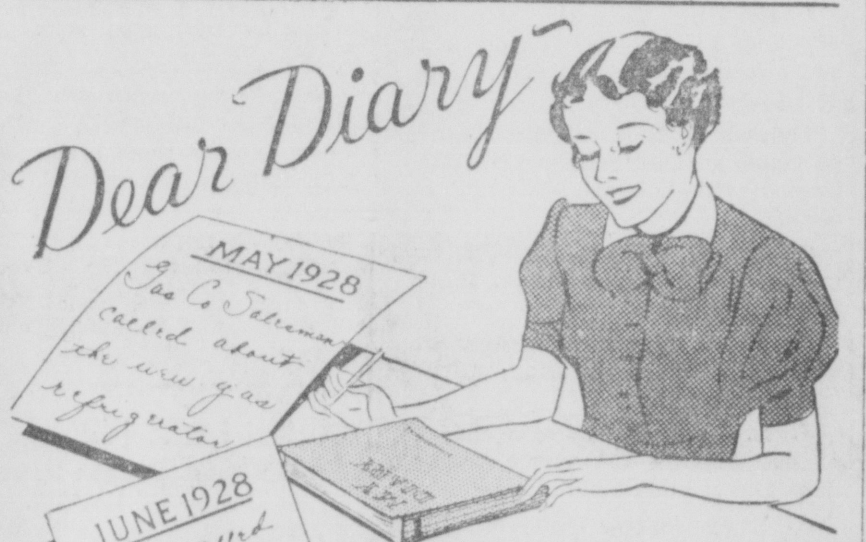 Dear Diary-
MAY 1928
Gas Co Salesman
called about
the new gas
refrigerator
MY
DIARY
JUNE 1928